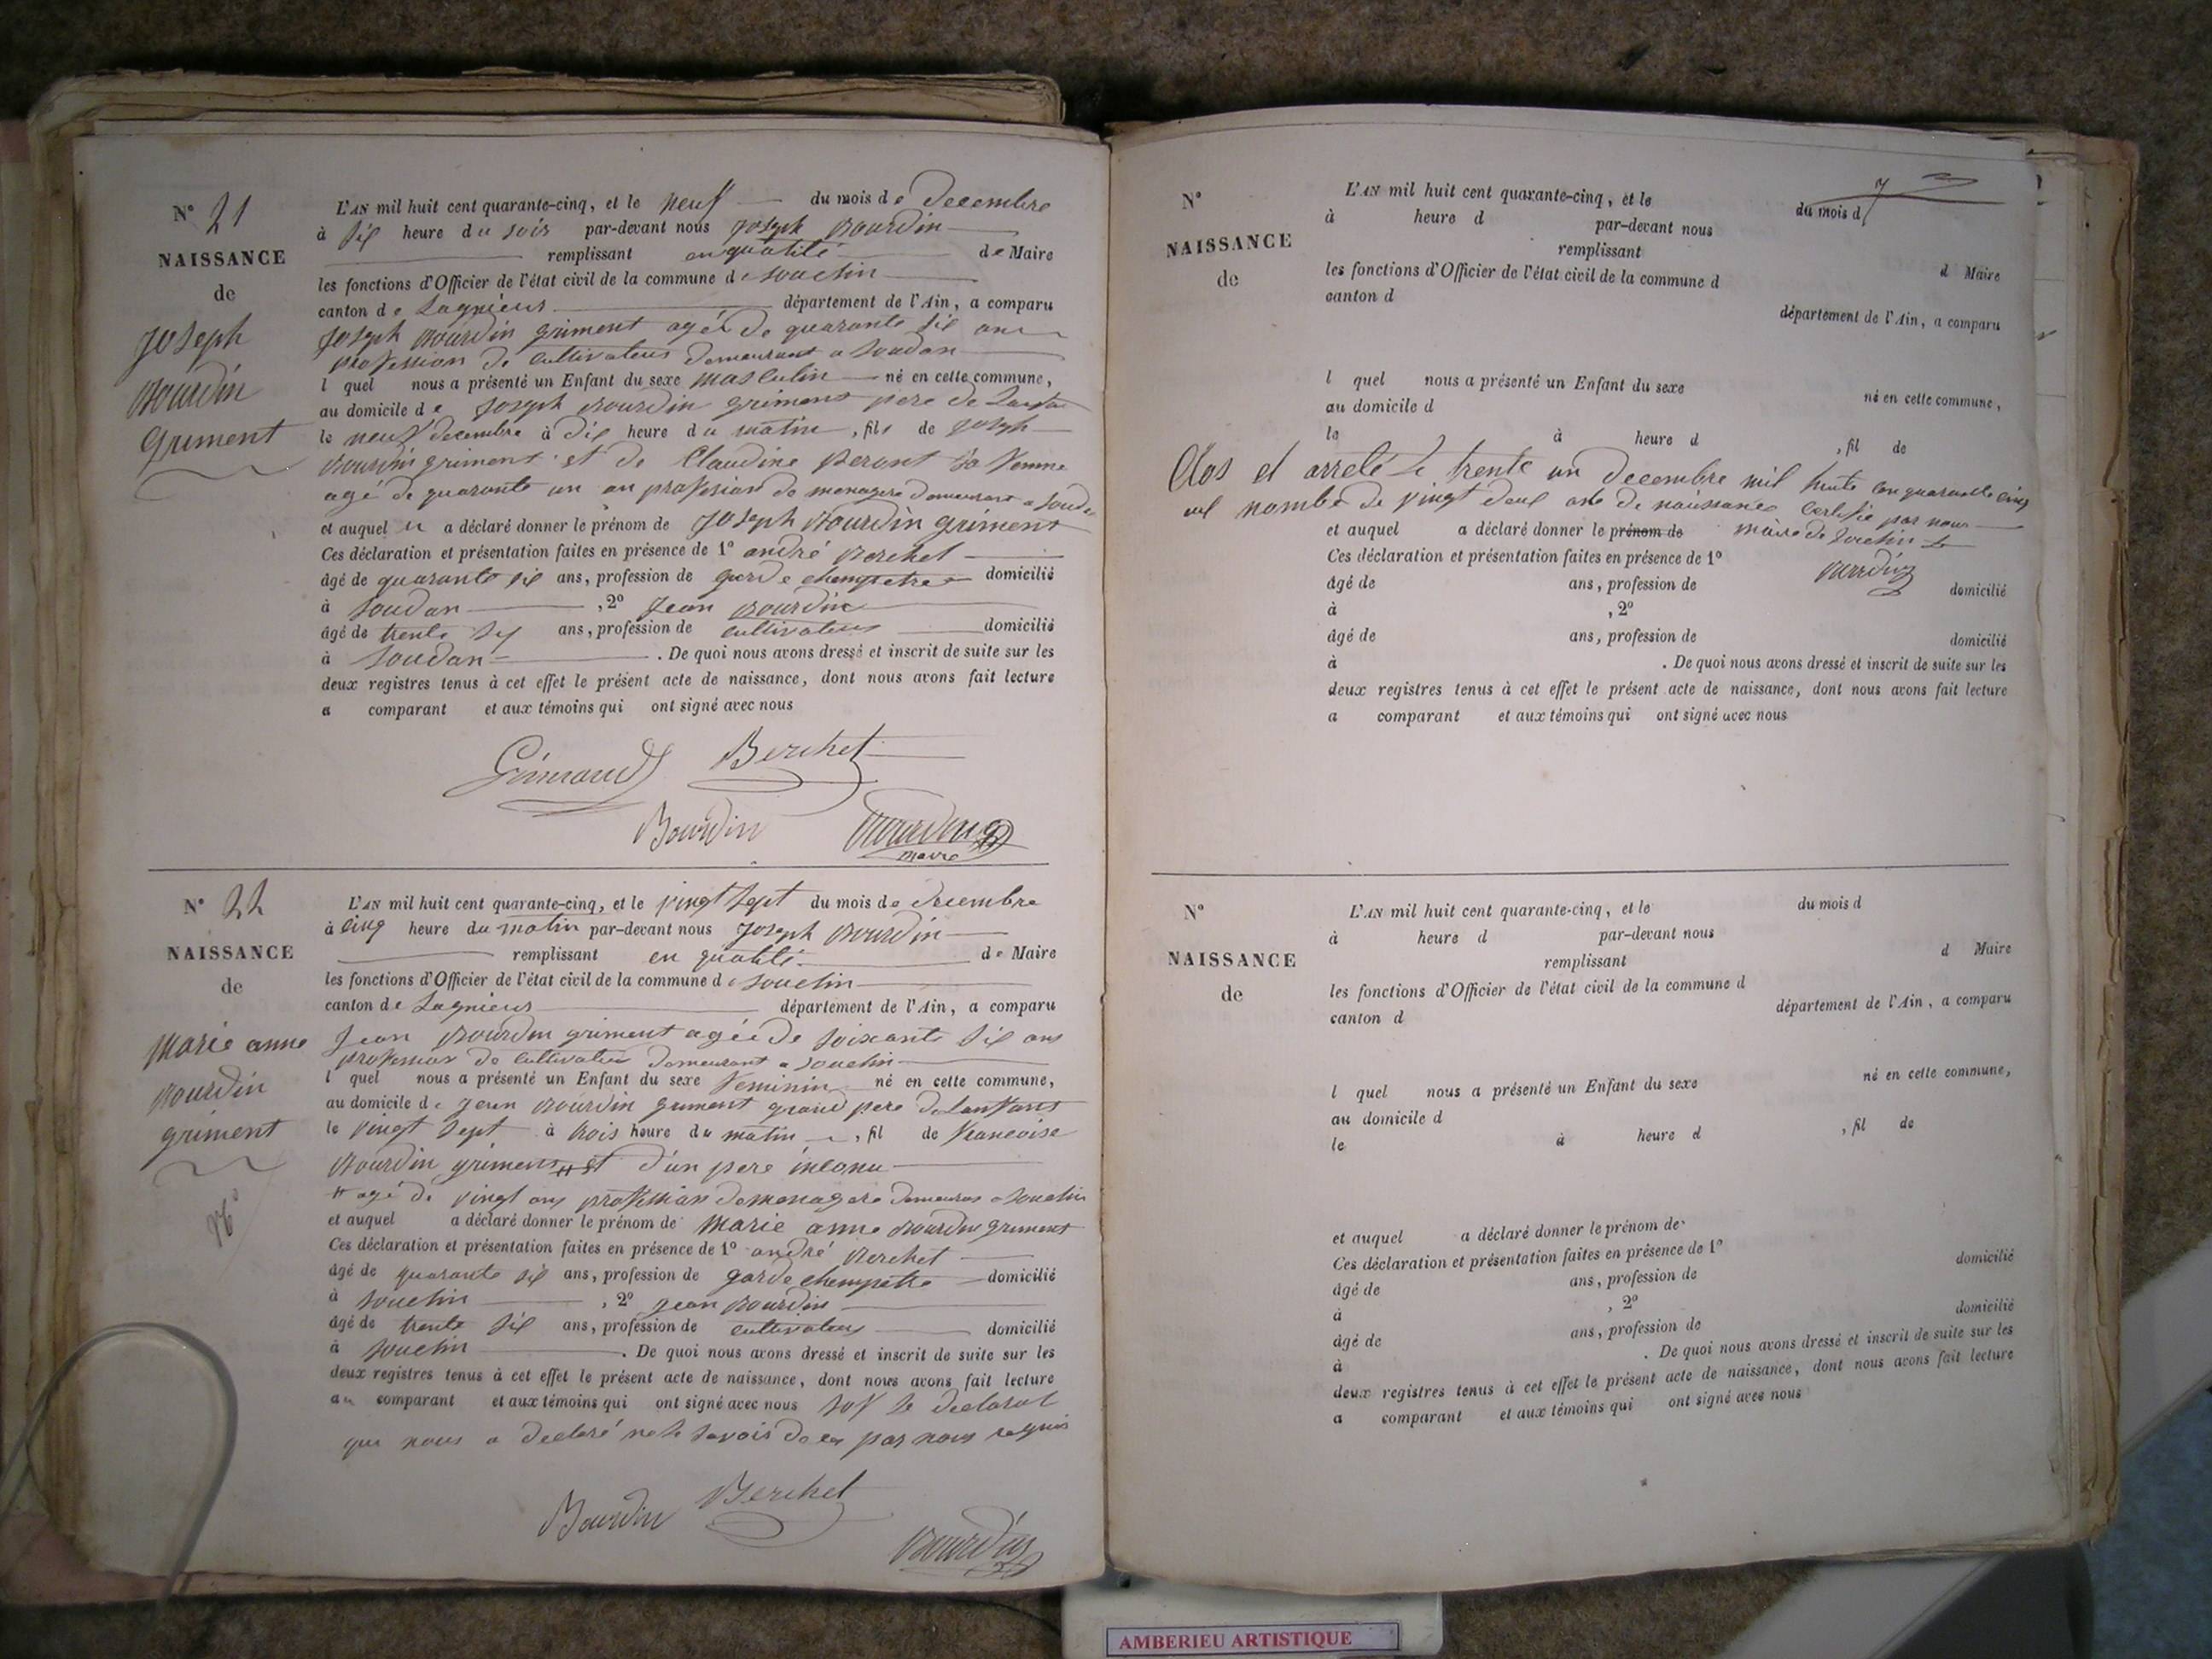 N° 21
NAISSANCE
de
Joseph
Bourdin
Griment
L'AN mil huit cent quarante-cinq, et le neuf du mois de Decembre
à six heure du soir par-devant nous Joseph Bourdin
remplissant en qualité de Maire
les fonctions d'Officier de l'état civil de la commune de Souclin
canton de Lagnieus département de l'Ain, a comparu
Joseph Bourdin griment agée de quarante six ans
profession de cultivateur demeurant a Soudon
l quel nous a présenté un Enfant du sexe masculin né en cette commune,
au domicile de Joseph Bourdin griment pere de
le neuf decembre à dix heure du matin, fils de Joseph
Bourdin griment et de Claudine Peront sa femme
agé de quarante un an profession de menagere demeurant a
et auquel il a déclaré donner le prénom de Joseph Bourdin griment
Ces déclaration et présentation faites en présence de 1° andré Berchet
âgé de quarante six ans, profession de garde champetre domicilié
à Soudon, 2° Jean Bourdin
âgé de trente six ans, profession de cultivateur domicilié
à Soudon. De quoi nous avons dressé et inscrit de suite sur les
deux registres tenus à cet effet le présent acte de naissance, dont nous avons fait lecture
a comparant et aux témoins qui ont signé avec nous
Berchet
Bourdin Bourdin
maire
N° 22
NAISSANCE
de
Marie anne
Bourdin
griment
L'AN mil huit cent quarante-cinq, et le vingt sept du mois de decembre
à cinq heure du matin par-devant nous Joseph Bourdin
remplissant en qualité de Maire
les fonctions d'Officier de l'état civil de la commune de Souclin
canton de Lagnieus département de l'Ain, a comparu
Jean Bourdin griment agée de soixante six ans
profession de cultivateur demeurant a souclin
l quel nous a présenté un Enfant du sexe feminin né en cette commune,
au domicile de jean Bourdin griment grand pere de lanfant
le vingt sept à trois heure du matin, fil de francoise
Bourdin griment # et d'un pere inconu
# agé de vingt ans profession de menagere demeuras a souclin
et auquel a déclaré donner le prénom de marie anne Bourdin griment
Ces déclaration et présentation faites en présence de 1° andré Berchet
âgé de quarante six ans, profession de garde chempetre domicilié
à souclin, 2° jean Bourdin
âgé de trente six ans, profession de cultivateur domicilié
à souclin. De quoi nous avons dressé et inscrit de suite sur les
deux registres tenus à cet effet le présent acte de naissance, dont nous avons fait lecture
au comparant et aux témoins qui ont signé avec nous sof le declarat
que nous a declaré ne le savoir de ce par nous requis
Bourdin Berchet
Bourdin
N°
NAISSANCE
de
L'AN mil huit cent quarante-cinq, et le du mois d
à heure d par-devant nous
remplissant d Maire
les fonctions d'Officier de l'état civil de la commune d
canton d département de l'Ain, a comparu
l quel nous a présenté un Enfant du sexe né en cette commune,
au domicile d
le à heure d , fil de
Clos et arrelé le trente un Decembre mil huite cen quarante cinq
au nombre de vingt deux acte de naissance Certifie par nous
et auquel a déclaré donner le prénom de maire de Souclin
Ces déclaration et présentation faites en présence de 1°
Bourdin
âgé de ans, profession de domicilié
à , 2°
âgé de ans, profession de domicilié
à . De quoi nous avons dressé et inscrit de suite sur les
deux registres tenus à cet effet le présent acte de naissance, dont nous avons fait lecture
a comparant et aux témoins qui ont signé avec nous
N°
NAISSANCE
de
L'AN mil huit cent quarante-cinq, et le du mois d
à heure d par-devant nous
remplissant d Maire
les fonctions d'Officier de l'état civil de la commune d
canton d département de l'Ain, a comparu
l quel nous a présenté un Enfant du sexe né en cette commune,
au domicile d
le à heure d , fil de
et auquel a déclaré donner le prénom de
Ces déclaration et présentation faites en présence de 1°
âgé de ans, profession de domicilié
à , 2°
âgé de ans, profession de domicilié
à . De quoi nous avons dressé et inscrit de suite sur les
deux registres tenus à cet effet le présent acte de naissance, dont nous avons fait lecture
a comparant et aux témoins qui ont signé avec nous
AMBERIEU ARTISTIQUE